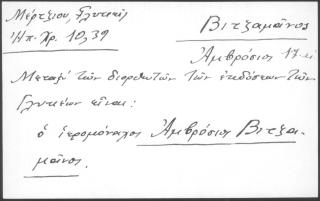 Μέρτζιου, Γλυκεῖς
Ἠπ. Χρ. 10, 39
Βιτζαμᾶνος
Ἀμβρόσιος 17-
Μεταξύ τῶν διορθωτῶν τῶν ἐκδόσεων τῶν
Γλυκέων εἶναι:
ὁ ἱερομόναχος Ἀμβρόσιος Βιτζα-
μᾶνος.